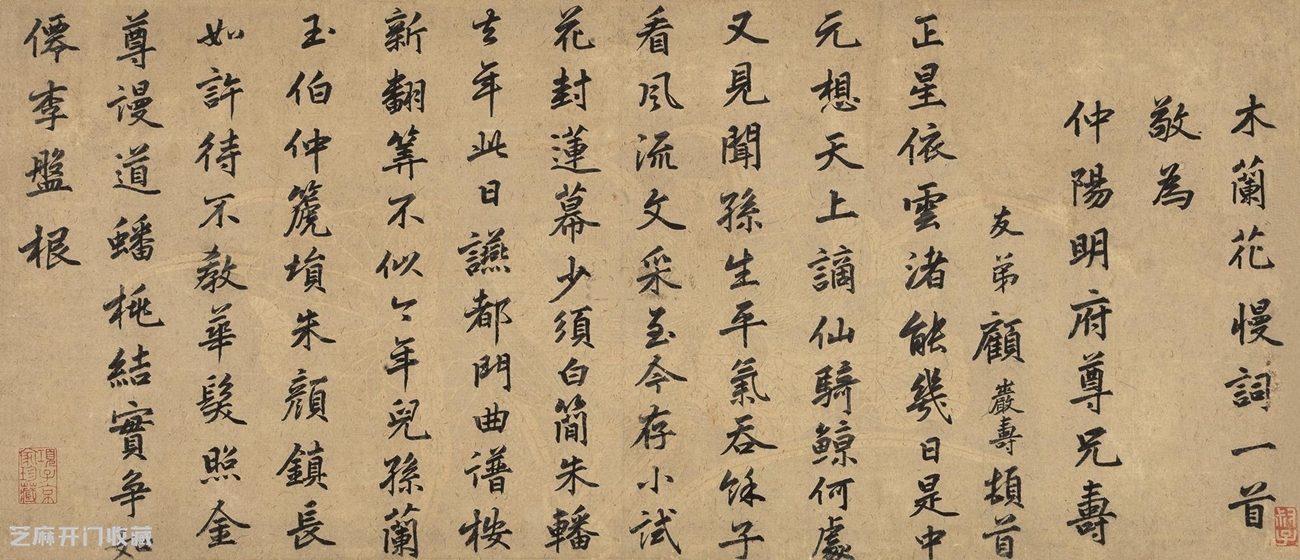 木蘭花慢詞一首
敬為
仲陽明府尊兄壽
友弟顧巖壽頓首
正星依雲渚能幾日是中
元想天上謫仙騎鯨何處
又見聞孫生平氣吞餘子
看風流文采至今存小試
花封蓮幕少須白簡朱轓
去年此日讌都門曲譜按
新翻筭不似今年兒孫蘭
玉伯仲箎塤朱顏鎮長
如許待不教華髮照金
尊漫道蟠桃結實爭如
僊李盤根
項子京家珍藏
芝麻开门收藏